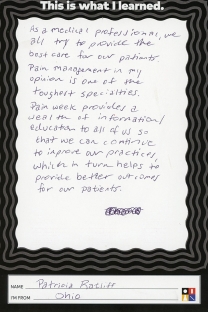 This is what I learned.
As a medical professional, we
all try to provide the
best care for our patients.
Pain management in my
opinion is one of the
toughest specialties.
Pain week provides a
wealth of information/
education to all of us so
that we can continue
to improve our practices,
which in turn helps to
provide better outcomes
for our patients.
NAME Patricia Ratliff
I'M FROM Ohio